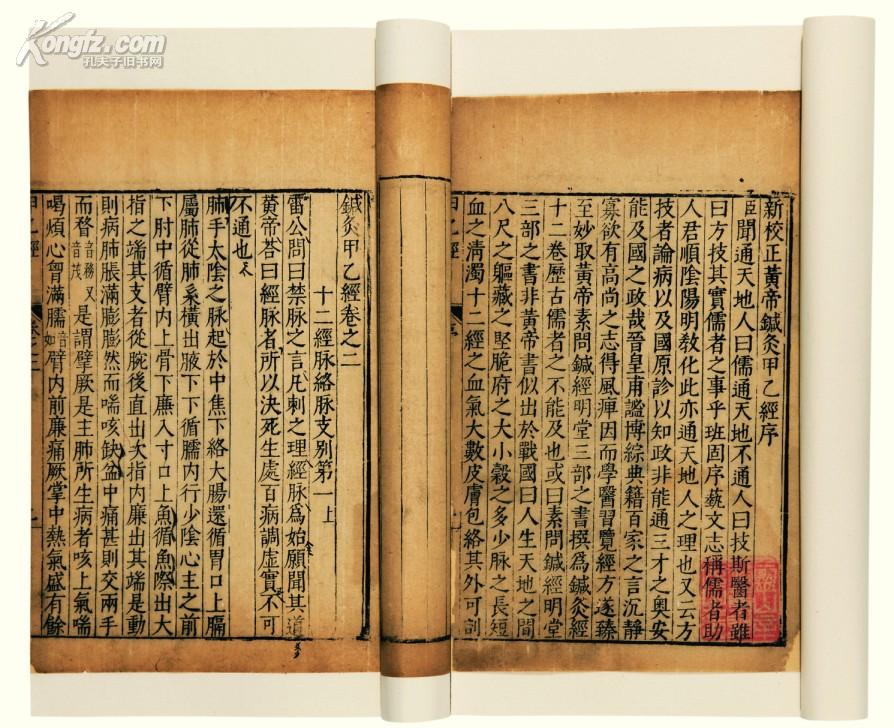 Kongfz.com
孔夫子旧书网
新校正黃帝鍼灸甲乙經序
臣聞通天地人曰儒通天地不通人曰技斯醫者雖
曰方技其實儒者之事乎班固序蓺文志稱儒者助
人君順陰陽明教化此亦通天地人之理也又云方
技者論病以及國原診以知政非能通三才之奧安
能及國之政哉晉皇甫謐博綜典籍百家之言沉靜
寡欲有高尚之志得風痺因而學醫習覽經方遂臻
至妙取黃帝素問鍼經明堂三部之書撰爲鍼灸經
十二卷歷古儒者之不能及也或曰素問鍼經明堂
三部之書非黃帝書似出於戰國曰人生天地之間
八尺之軀藏之堅脆府之大小穀之多少脉之長短
血之清濁十二經之血氣大數皮膚包絡其外可剖
甲乙經
序
鍼灸甲乙經卷之二
十二經脉絡脉支別第一上
雷公問曰禁脉之言凡刺之理經脉爲始願聞其道
黃帝荅曰經脉者所以決死生處百病調虛實不可
不通也
肺手太陰之脉起於中焦下絡大腸還循胃口上膈
屬肺從肺系橫出腋下下循臑内行少陰心主之前
下肘中循臂内上骨下廉入寸口上魚循魚際出大
指之端其支者從腕後直出次指内廉出其端是動
則病肺脹滿膨膨然而喘咳缺盆中痛甚則交兩手
而瞀音務又音茂是謂臂厥是主肺所生病者咳上氣喘
喝煩心胷滿臑音如臂内前廉痛厥掌中熱氣盛有餘
甲乙經
卷之二